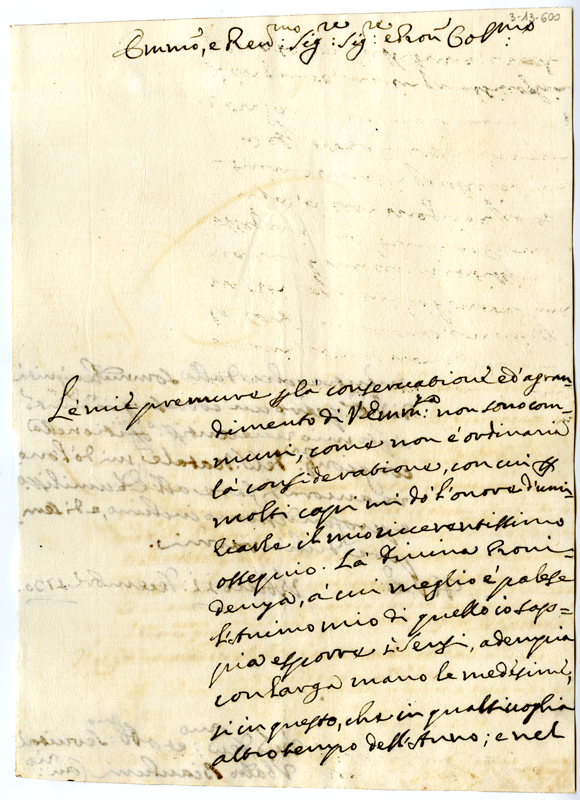 3-13-600
Emmo, e Revmo: Sigre: Sigre: e Pron Colmo
Le mie premure p la conservatione, ed'agran=
dimento di V. Emmza: non sono com=
muni, come non é ordinaria
la consideratione, con cui p
molti capi mi dó l'onore d'umi=
liarle il mio riverentissimo
ossequio. La Divina Provi=
denza, á cui meglio é palese
l'Animo mio di quello io sap=
pia esporre i sensi, adempia
con larga mano le medesime,
si in questo, che in qualsivoglia
altro tempo dell'Anno; e nel